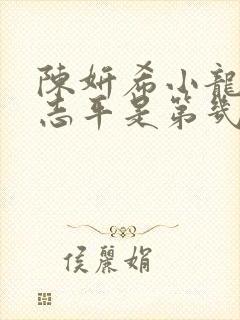 陳妍希小龍
志平是第幾
侯麗娟